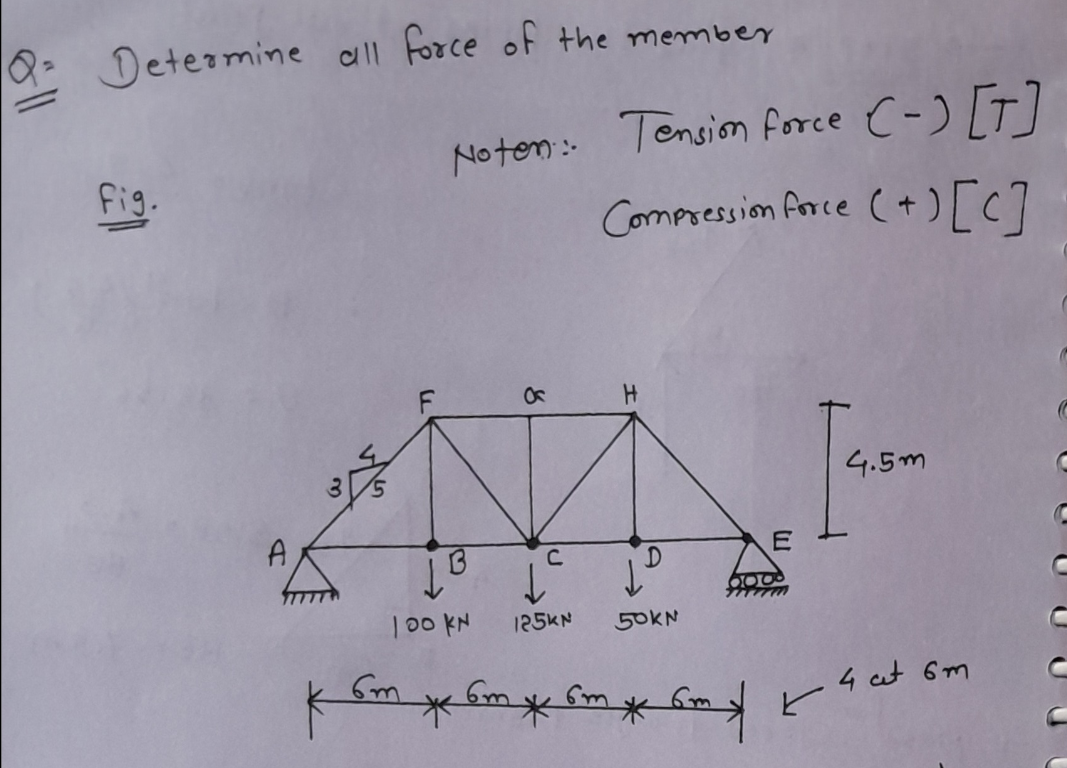 Q= Determine all force of the member
Noten:- Tension force (-) [T]
Fig.
Compression force (+) [C]
F G H
4
3 5
4.5m
A B C D E
100 KN 125KN 50KN
6m 6m 6m 6m
4 at 6m